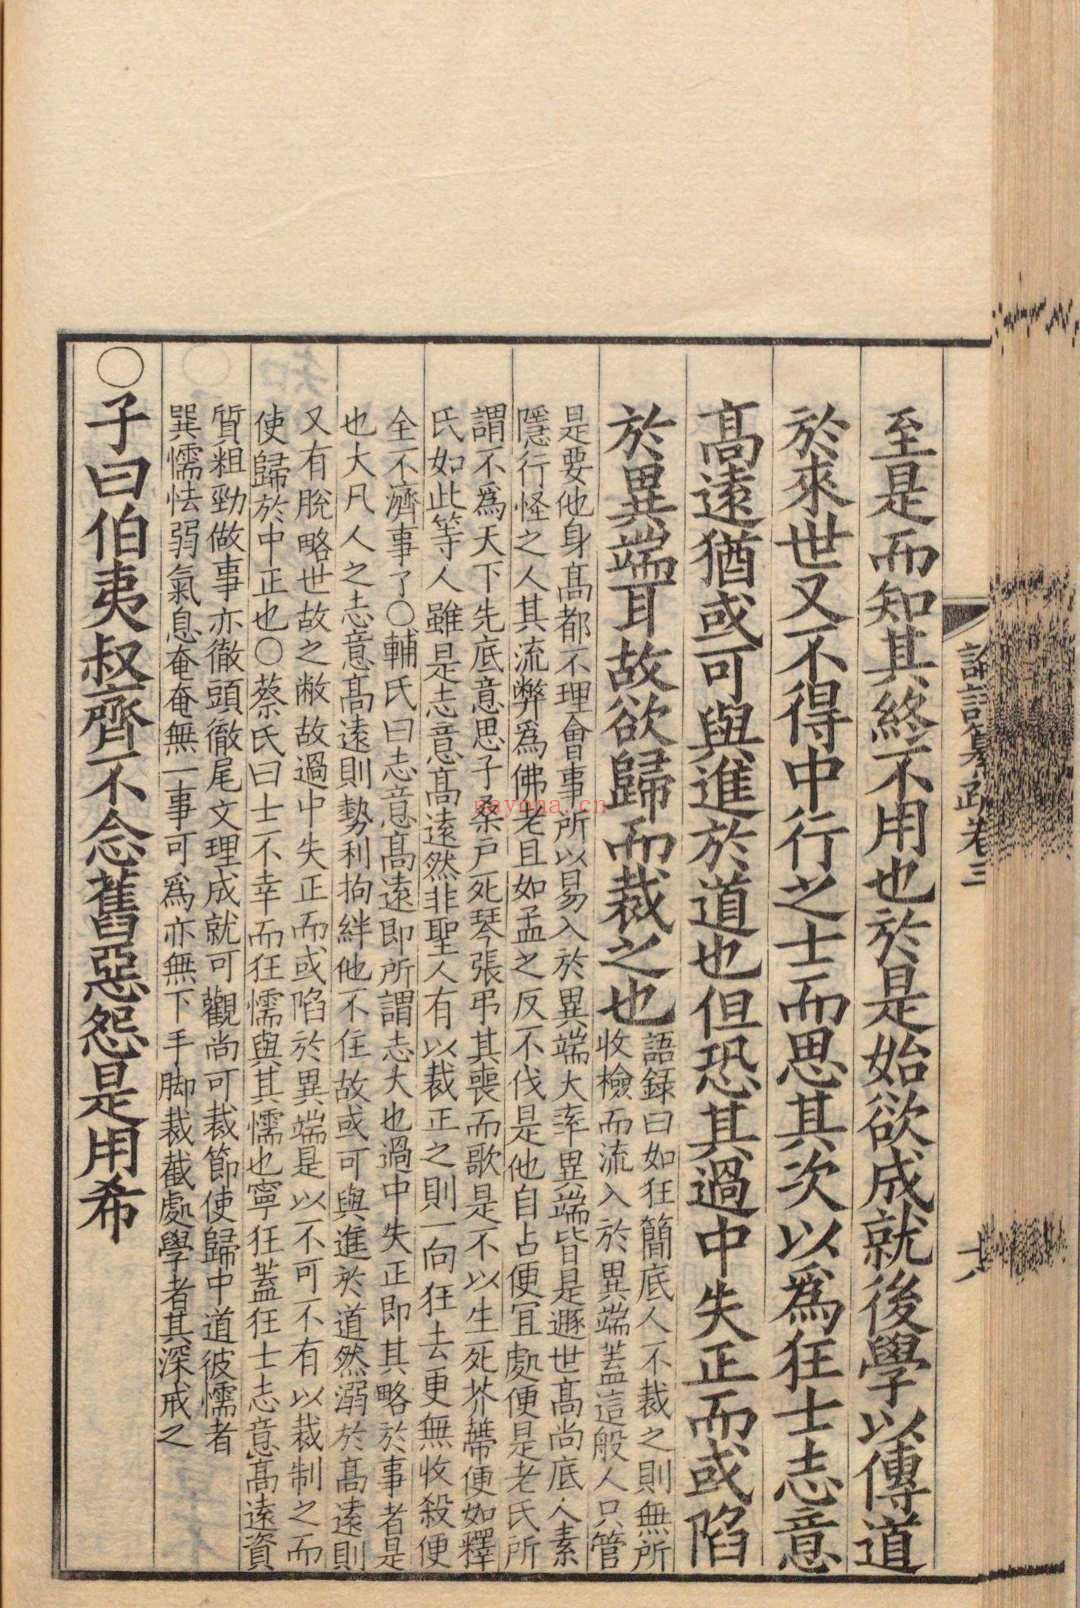 至是而知其終不用也於是始欲成就後學以傳道
於來世又不得中行之士而思其次以爲狂士志意
高遠猶或可與進於道也但恐其過中失正而或陷
於異端耳故欲歸而裁之也
語録曰如狂簡底人不裁之則無所
收檢而流入於異端蓋這般人只管
是要他身高都不理會事所以易入於異端大率異端皆是遯世高尚底人素
隱行怪之人其流弊爲佛老且如孟之反不伐是他自占便冝處便是老氏所
謂不爲天下先底意思子桑户死琴張弔其喪而歌是不以生死芥蔕便如釋
氏如此等人雖是志意高遠然非聖人有以裁正之則一向狂去更無收殺便
全不濟事了○輔氏曰志意高遠即所謂志大也過中失正即其略於事者是
也大凡人之志意高遠則勢利拘絆他不住故或可與進於道然溺於高遠則
又有脫略世故之敝故過中失正而或陷於異端是以不可不有以裁制之而
使歸於中正也○蔡氏曰士不幸而狂懦與其懦也寧狂蓋狂士志意高遠資
質粗勁做事亦徹頭徹尾文理成就可觀尚可裁節使歸中道彼懦者
巽懦怯弱氣息奄奄無一事可爲亦無下手脚裁截處學者其深戒之
○子曰伯夷叔齊不念舊惡怨是用希
論語纂疏卷三
十八
nayona.cn